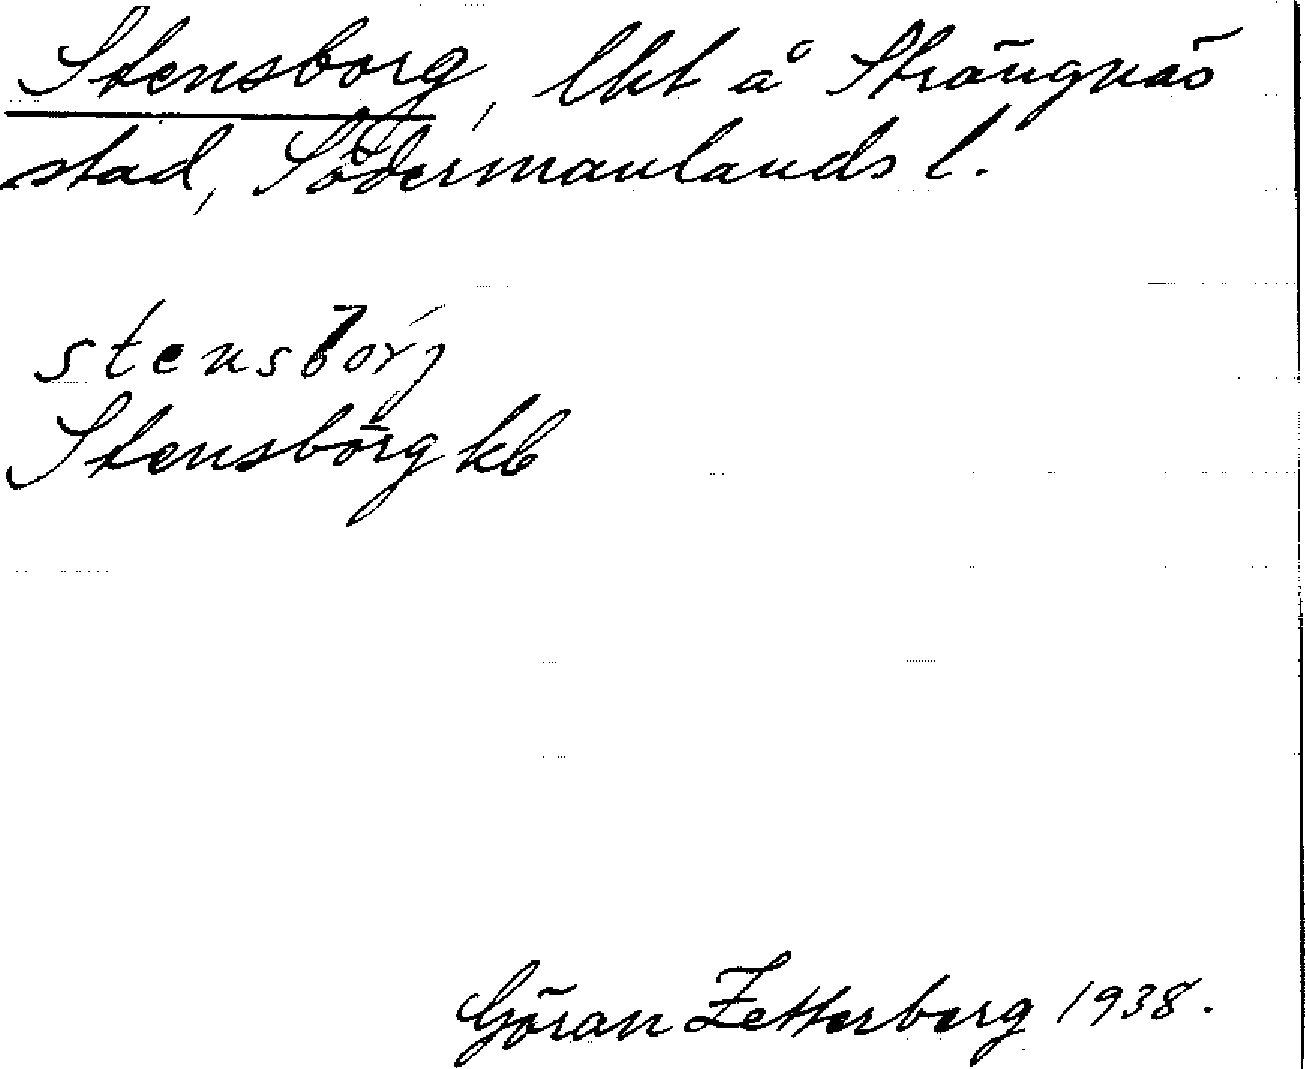 Stensborg, lht å Strängnäs
stad, Södermanlands l.
stensborj
Stensbörg kb
Göran Zetterberg 1938.